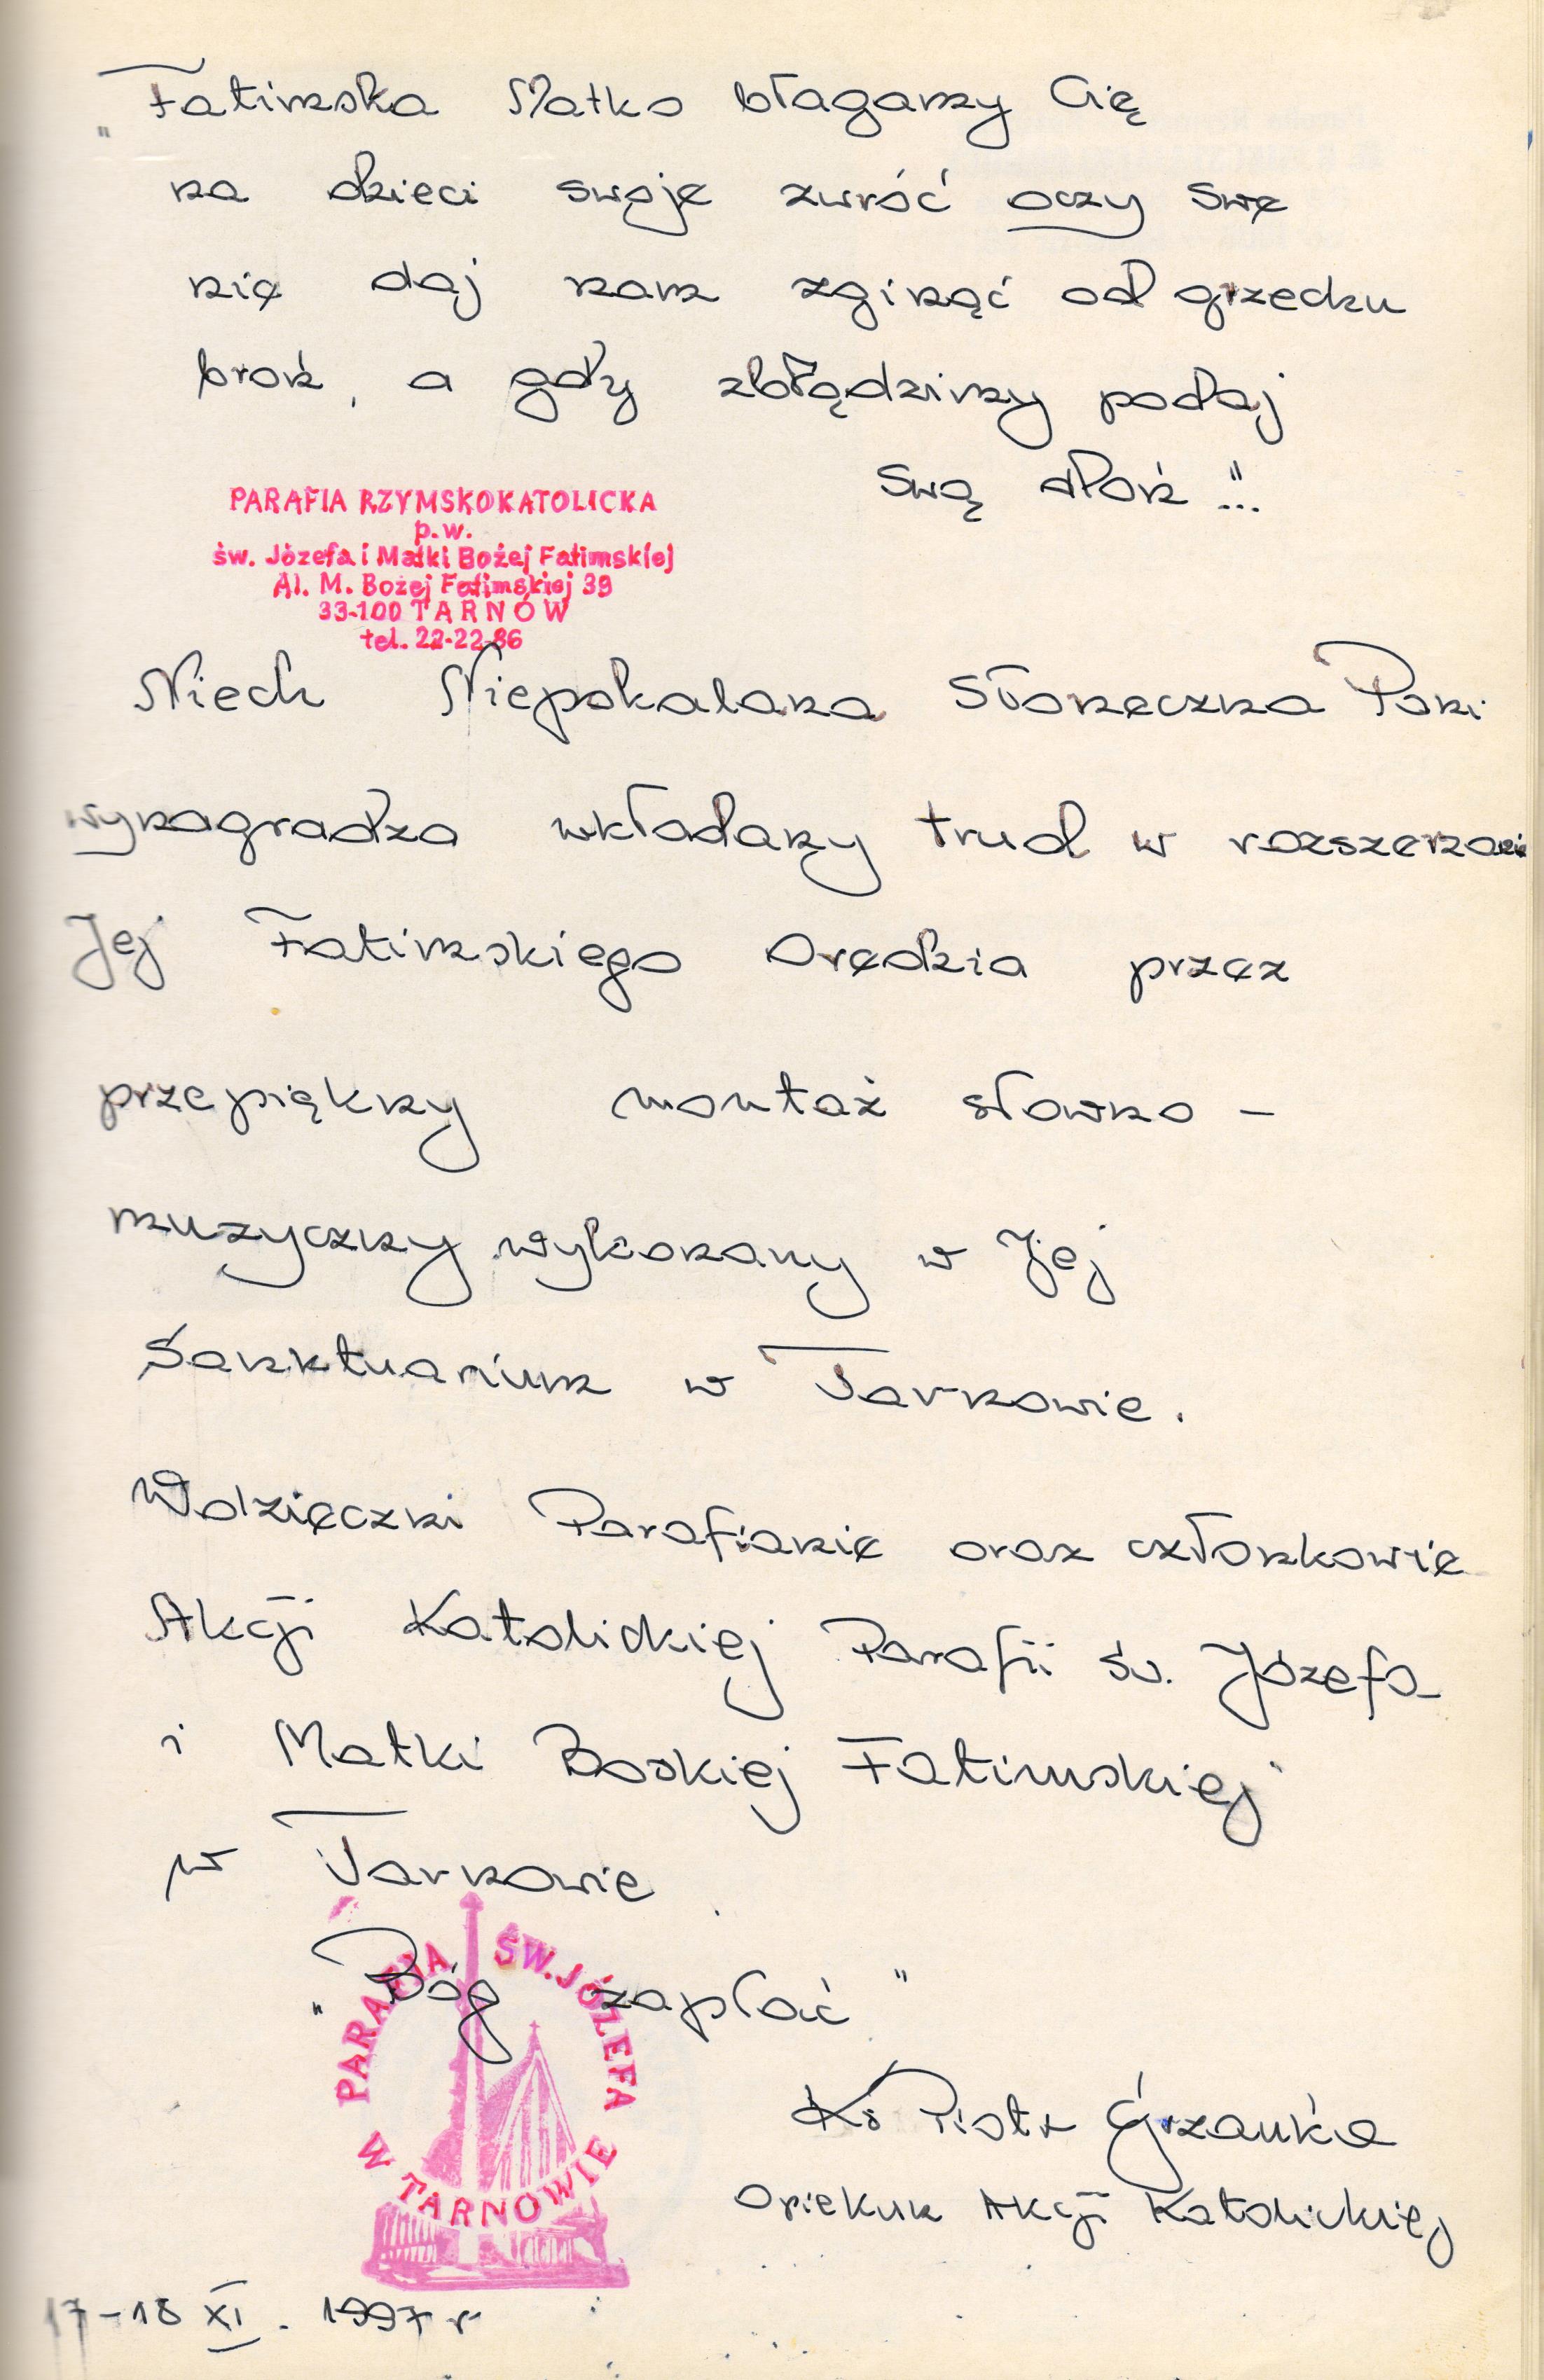 „Fatimska Matko błagamy Cię
na dzieci swoje zwróć oczy swe
nie daj nam zginąć od grzechu
broń, a gdy zbłądzimy podaj
swą dłoń..."
PARAFIA RZYMSKOKATOLICKA
p.w.
św. Józefa i Matki Bożej Fatimskiej
Al. M. Bożej Fatimskiej 39
33-100 TARNÓW
tel. 22-22-86
Niech Niepokalana Słoneczna Pani
wynagradza wkładany trud w rozszerzanie
Jej Fatimskiego Orędzia przez
przepiękny montaż słowno -
muzyczny wykonany w Jej
Sanktuarium w Tarnowie.
Wdzięczni Parafianie oraz członkowie
Akcji Katolickiej Parafii św. Józefa
i Matki Boskiej Fatimskiej
w Tarnowie.
„Bóg zapłać"
PARAFIA ŚW. JÓZEFA
W TARNOWIE
Ks Piotr
Opiekun Akcji Katolickiej
17-18 XI. 1997 r